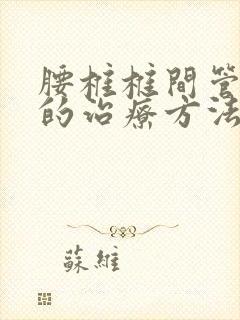 腰柱柱間管
的治療方法
蘇維